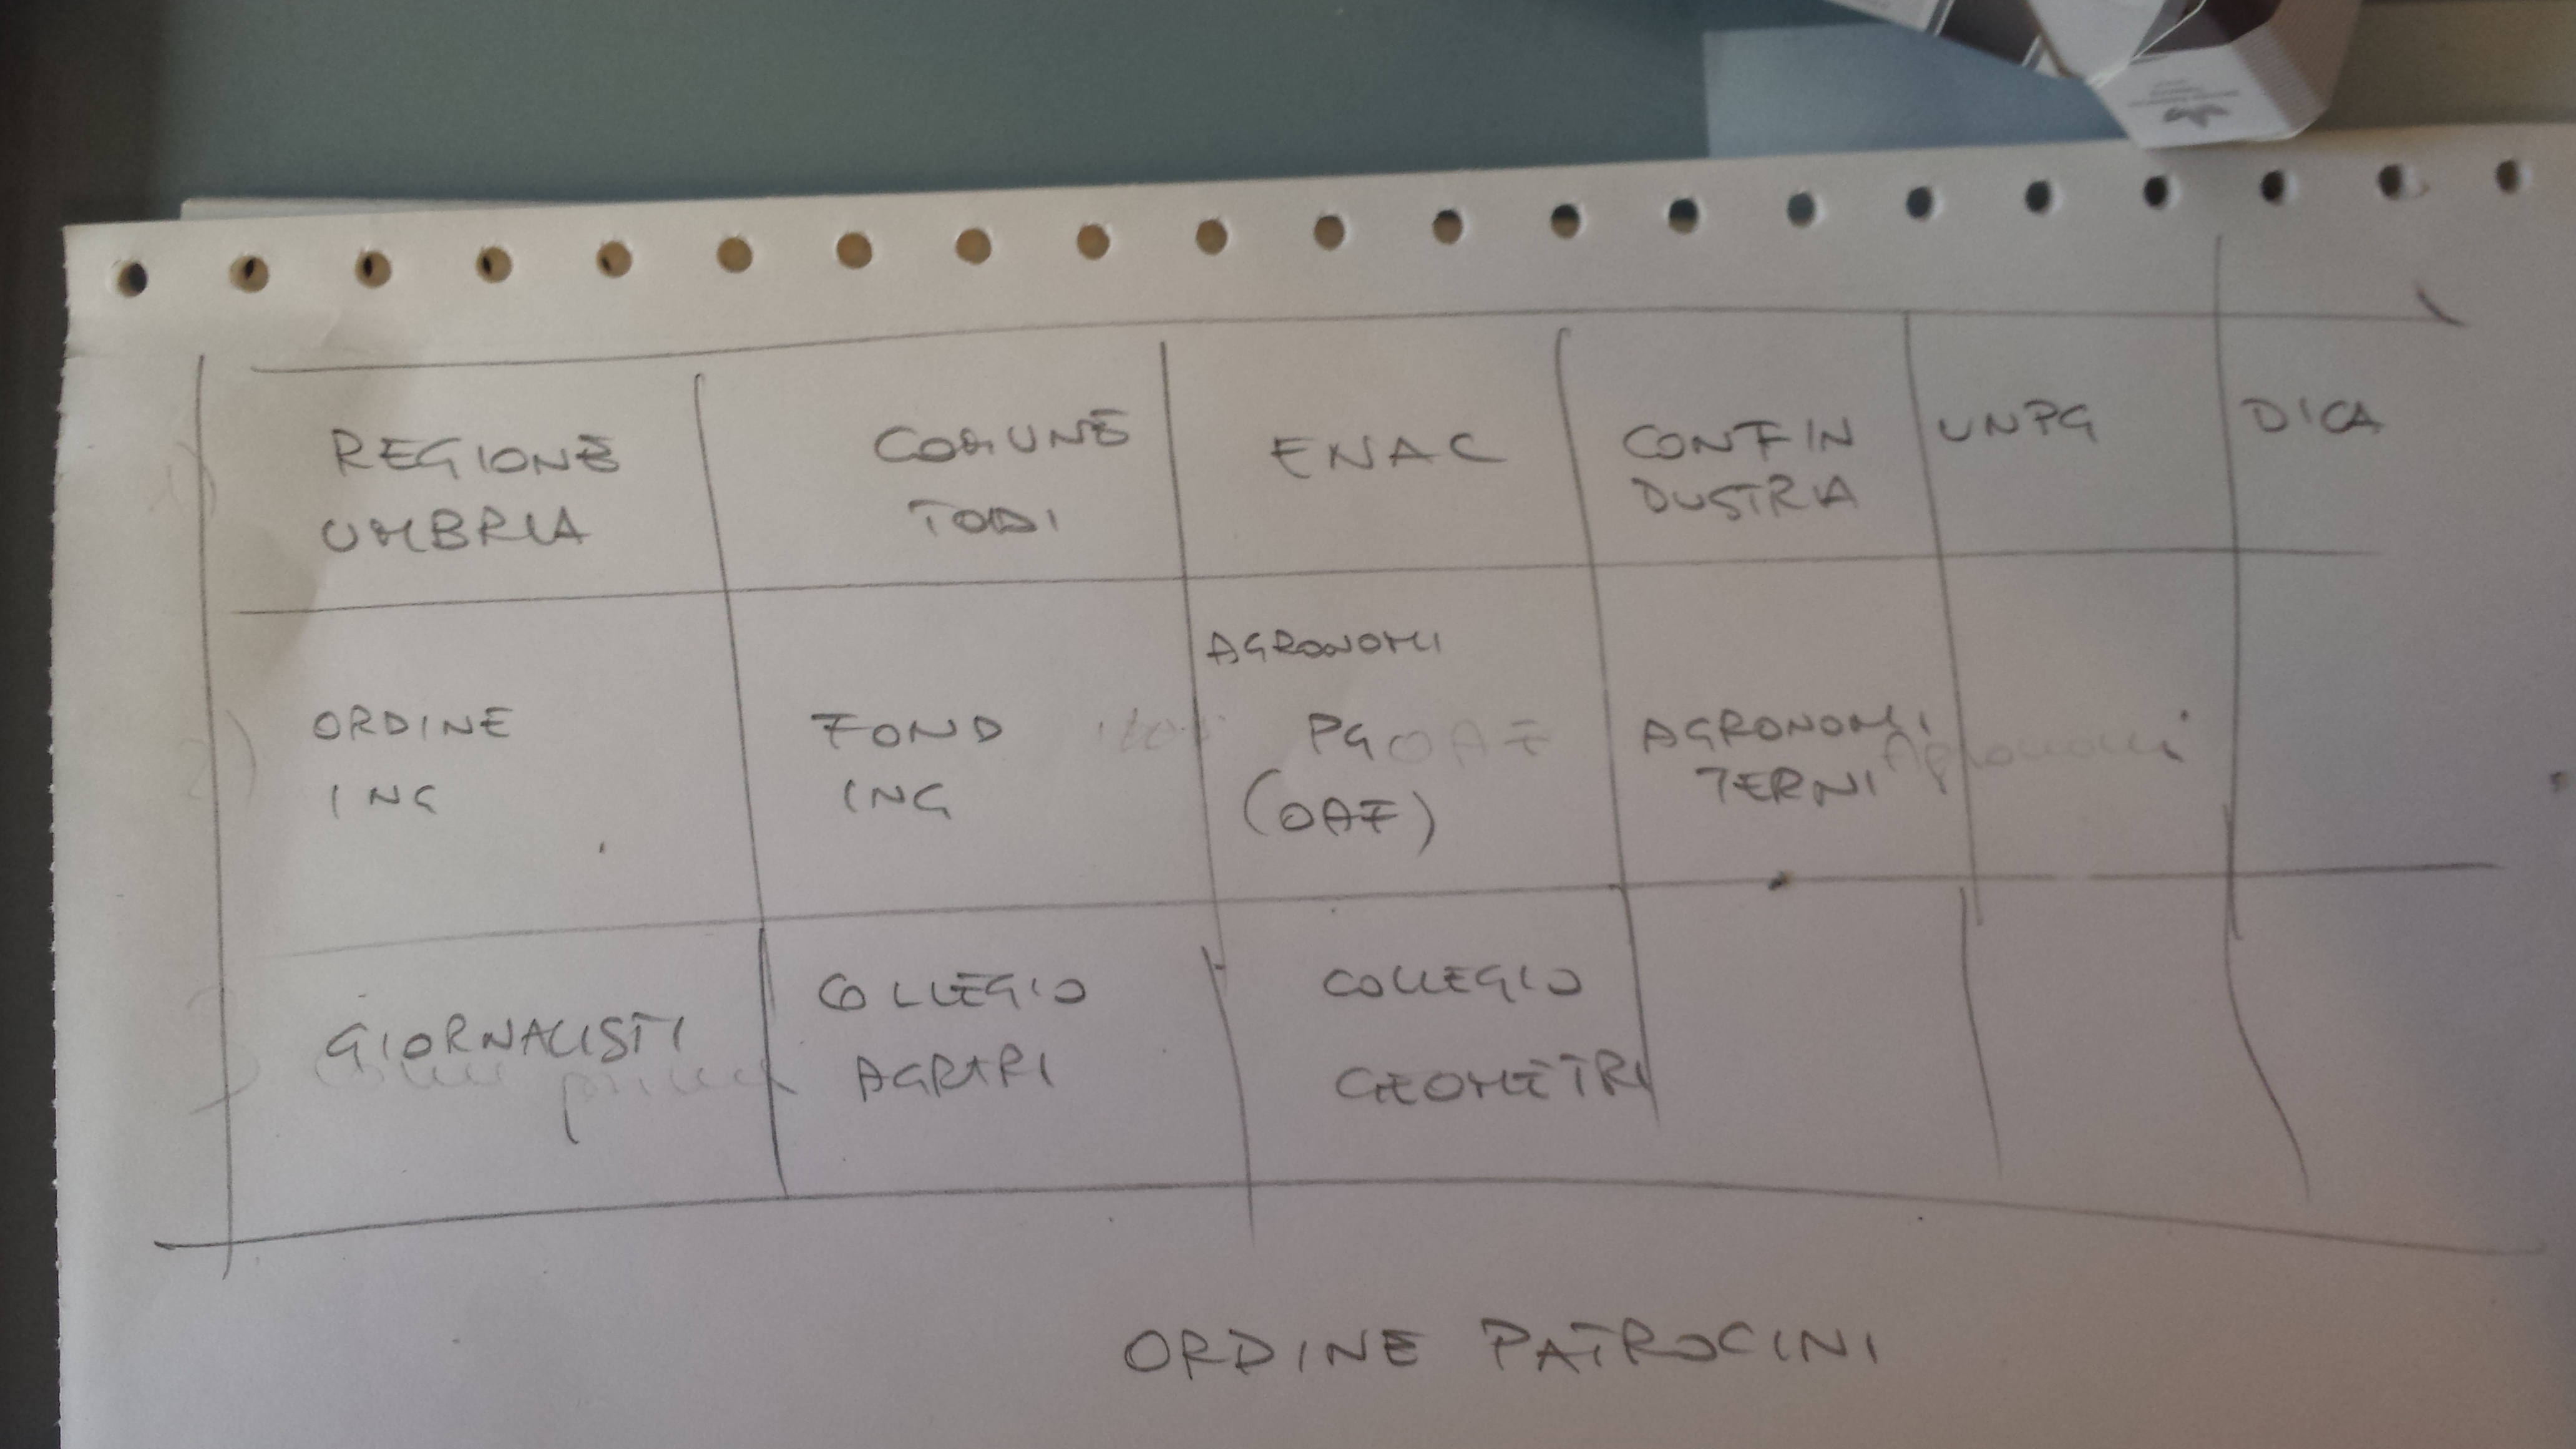 REGIONE
UMBRIA
COMUNE
TODI
ENAC
CONFIN
DUSTRIA
UNPG
DICA
2)
ORDINE
ING
FOND
ING
AGRONOMI
PG OAF
(OAF)
AGRONOMI
TERNI
Agronomi
GIORNALISTI
COLLEGIO
AGRARI
COLLEGIO
GEOMETRI
ORDINE PATROCINI